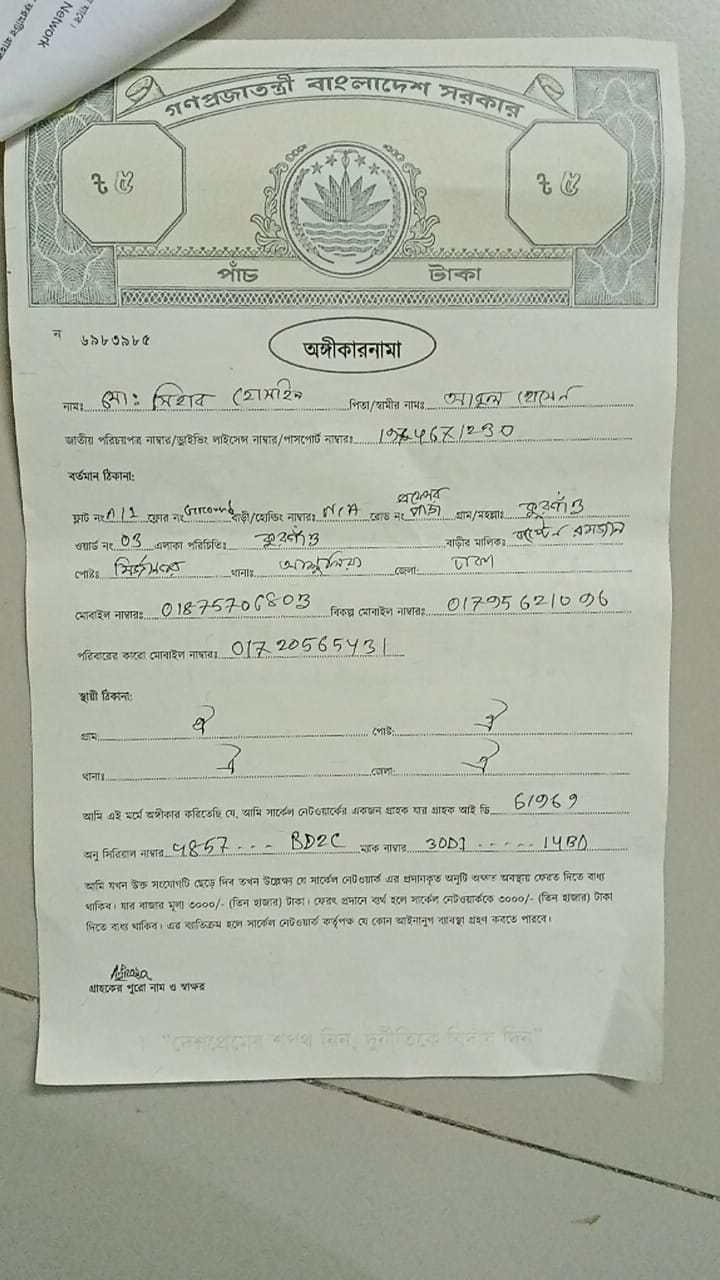 Network
গণপ্রজাতন্ত্রী বাংলাদেশ সরকার
৳ ৫ ৳ ৫
পাঁচ টাকা
ন ৬৯৮৩৯৮৫
অঙ্গীকারনামা
নামঃ মো: সিহাব হোসাইন পিতা/স্বামীর নামঃ আবুল হোসেন
জাতীয় পরিচয়পত্র নাম্বার/ড্রাইভিং লাইসেন্স নাম্বার/পাসপোর্ট নাম্বারঃ
বর্তমান ঠিকানা:
ফ্লাট নং A/1 ফ্লোর নং Ground বাড়ী/হোল্ডিং নাম্বারঃ N/A রোড নং গ্রাম/মহল্লাঃ
ওয়ার্ড নং 03 এলাকা পরিচিতিঃ বাড়ীর মালিকঃ রমজান
পোষ্টঃ থানাঃ আশুলিয়া জেলা: ঢাকা
মোবাইল নাম্বারঃ 01875706803 বিকল্প মোবাইল নাম্বারঃ 01795621096
পরিবারের কারো মোবাইল নাম্বারঃ 01720565431
স্থায়ী ঠিকানা:
গ্রাম: ঐ পোষ্ট: ঐ
থানাঃ ঐ জেলা: ঐ
আমি এই মর্মে অঙ্গীকার করিতেছি যে, আমি সার্কেল নেটওয়ার্কের একজন গ্রাহক যার গ্রাহক আই ডি 61969
অনু সিরিয়াল নাম্বার 4857 ... BD2C ম্যাক নাম্বার 30D1 ...... 14BA
আমি যখন উক্ত সংযোগটি ছেড়ে দিব তখন উল্লেক্ষ্য যে সার্কেল নেটওয়ার্ক এর প্রদানকৃত অনুটি অক্ষত অবস্থায় ফেরত দিতে বাধ্য
থাকিব। যার বাজার মূল্য ৩০০০/- (তিন হাজার) টাকা। ফেরৎ প্রদানে ব্যর্থ হলে সার্কেল নেটওয়ার্ককে ৩০০০/- (তিন হাজার) টাকা
দিতে বাধ্য থাকিব। এর ব্যতিক্রম হলে সার্কেল নেটওয়ার্ক কর্তৃপক্ষ যে কোন আইনানুগ ব্যবস্থা গ্রহণ করতে পারবে।
গ্রাহকের পুরো নাম ও স্বাক্ষর
"দেশপ্রেমের শপথ নিন, দুর্নীতিকে বিদায় দিন"